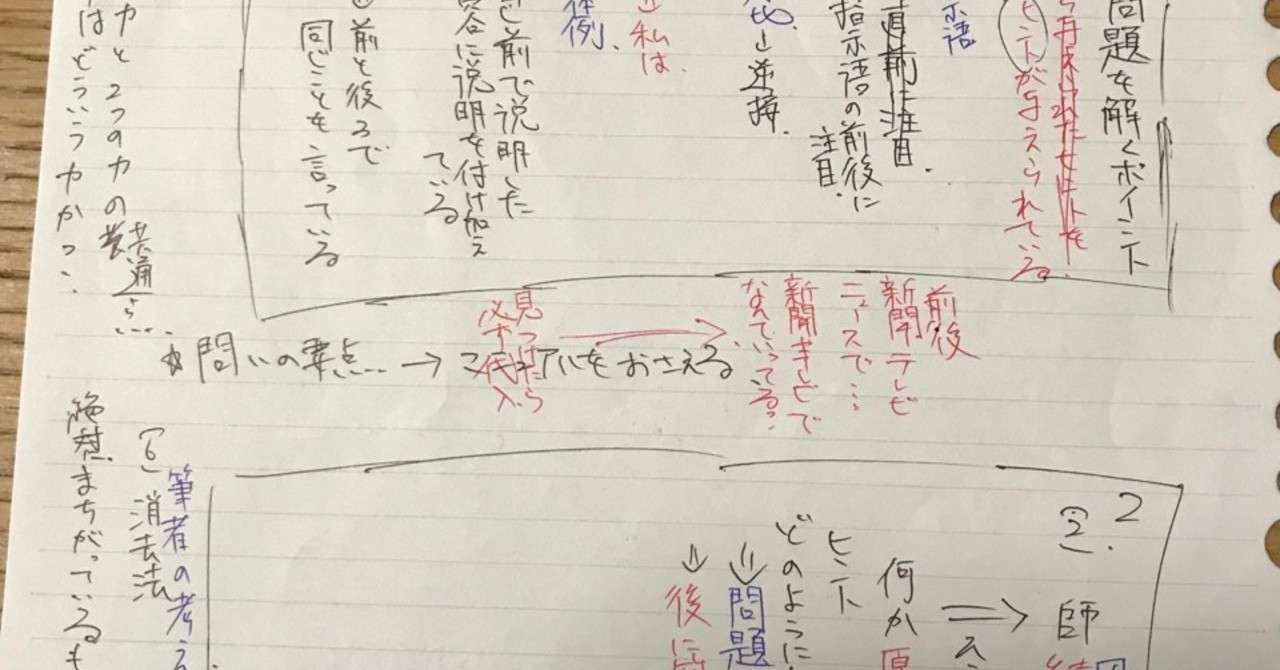 問題を解くポイント
ヒントが与えられている。
示語
直前に注目。
指示語の前後に
注目。
→逆接。
私は
体例、
前で説明した
内容に説明を付け加え
ている
前と後ろで
同じことを言っている
力と2つの力の共通点
はどういう力か
問いの要点→
をおさえる。
見つけたら
必ず代入
前後
新聞テレビ
ニュースで…
新聞テレビで
なんていってる?
2
②.
師
何か
ヒント
どのように
⇓問題
↓後に
筆者の考え
⑥消去法
絶対まちがっているも